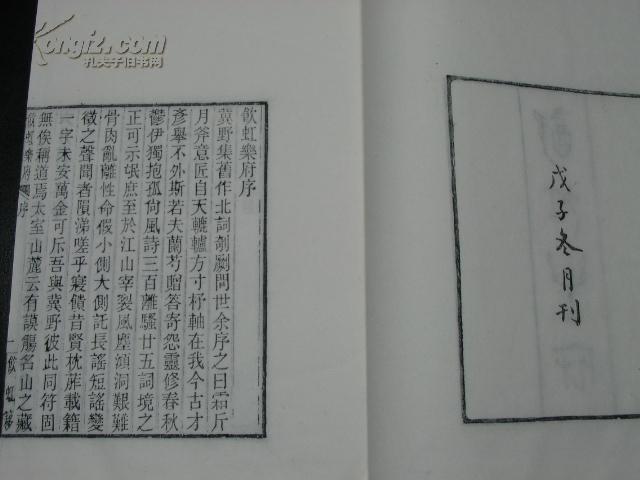 Kongfz.com
孔夫子旧书网
戊子冬月刊
飲虹樂府序
冀野集舊作北詞刻劂問世余序之曰霜斤
月斧意匠自天轆轤方寸杼軸在我今古才
彥舉不外斯若夫蘭芍贈答寄怨靈修春秋
鬱伊獨抱孤尙風詩三百離騷廿五詞境之
正可示氓庶至於江山宰裂風塵澒洞艱難
骨肉亂離性命假小側大側託長謠短謠變
徵之聲聞者隕涕嗟乎寢饋昔賢枕葄載籍
一字未安萬金可斥吾與冀野彼此同符固
無俟稱道焉太室山麓云有謨觴名山之藏
飲虹樂府 序
一 飲虹簃